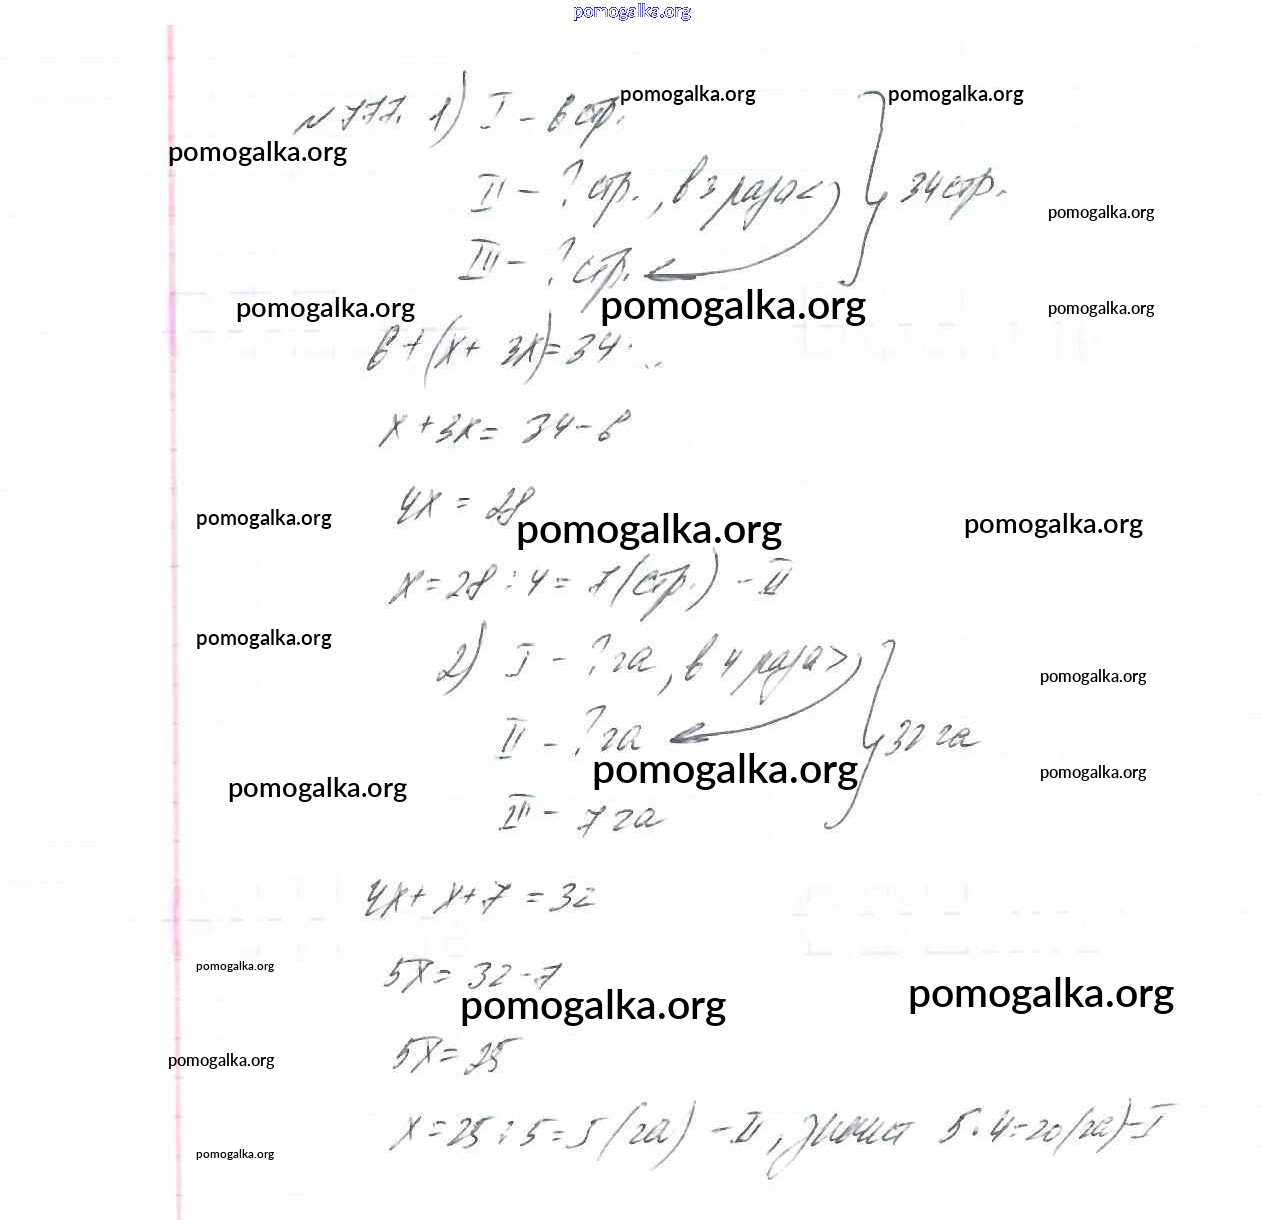 pomogalka.org
pomogalka.org pomogalka.org
№ 777. 1) I - 6 стр.
pomogalka.org
II - ? стр., в 3 раза < 34 стр.
pomogalka.org
III - ? стр.
pomogalka.org pomogalka.org pomogalka.org
6 + (x + 3x) = 34
x + 3x = 34 - 6
4x = 28
pomogalka.org pomogalka.org pomogalka.org
x = 28 : 4 = 7 (стр.) - II
pomogalka.org
2) I - ? га, в 4 раза >
pomogalka.org
II - ? га 32 га
pomogalka.org pomogalka.org
pomogalka.org
III - 7 га
4x + x + 7 = 32
pomogalka.org
5x = 32 - 7
pomogalka.org pomogalka.org
5x = 25
pomogalka.org
x = 25 : 5 = 5 (га) - II, значит 5 · 4 = 20 (га) - I
pomogalka.org